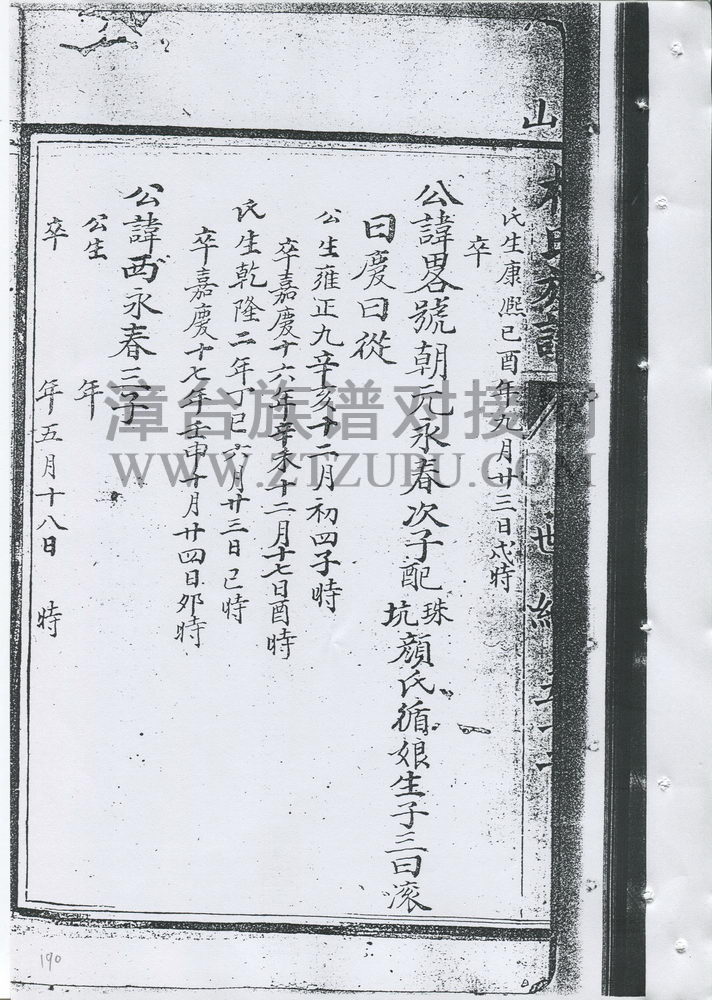 氏生康熙己酉年九月廿三日戌時
卒
公諱畧號朝元永春次子配珠坑顏氏循娘生子三曰滚
曰慶曰從
公生雍正九辛亥十二月初四子時
卒嘉慶十六年辛未十二月十七日酉時
氏生乾隆二年丁巳六月廿三日巳時
卒嘉慶十七年壬申十月廿四日夘時
公諱西永春三子
公生 年
卒 年五月十八日 時
山
漳台族谱对接网
WWW.ZTZUPU.COM
190